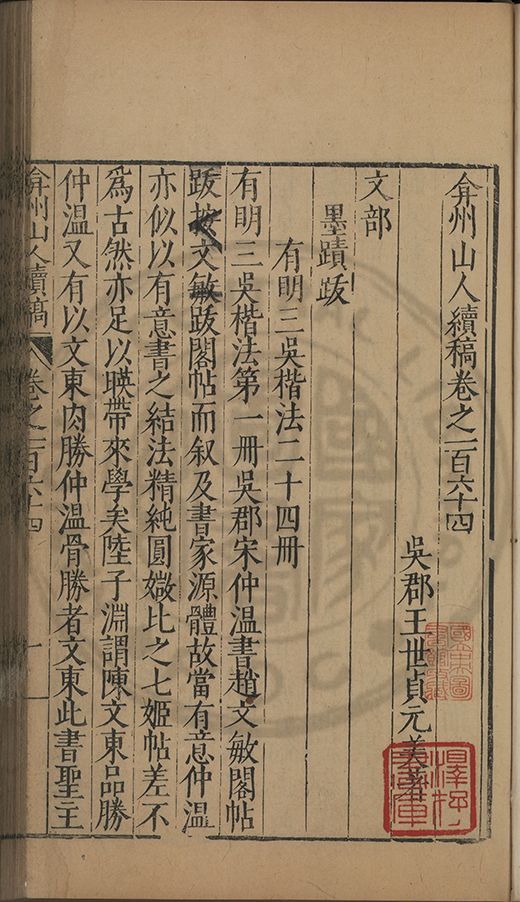 弇州山人續稿卷之一百六十四
吳郡王世貞元美著
文部
墨蹟跋
有明三吳楷法二十四冊
有明三吳楷法第一冊吳郡宋仲温書趙文敏閣帖
跋按文敏跋閣帖而叙及書家源體故當有意仲温
亦似以有意書之結法精純圓媺比之七姬帖差不
為古然亦足以暎帶來學矣陸子淵謂陳文東品勝
仲温又有以文東肉勝仲温骨勝者文東此書聖主
弇州山人續稿
卷之一百六十四
一